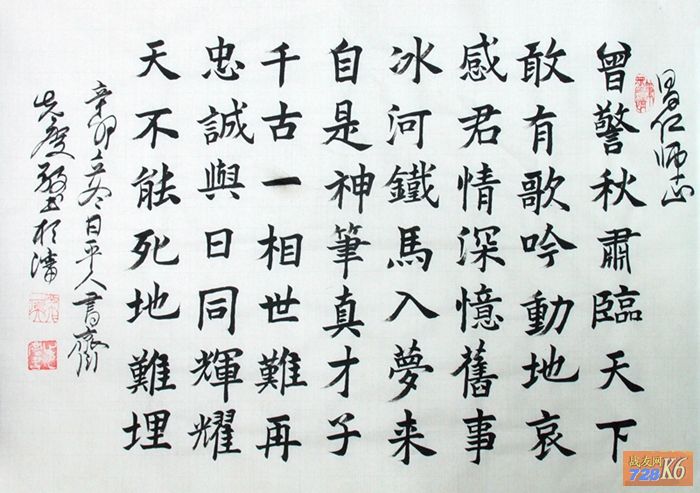 仁师正
曾警秋肅臨天下
敢有歌吟動地哀
感君情深憶舊事
冰河鐵馬入夢来
自是神筆真才子
千古一相世難再
忠誠與日同輝耀
天不能死地難埋
辛卯立冬日平人書齋
慶敬书於
战友网
728K6